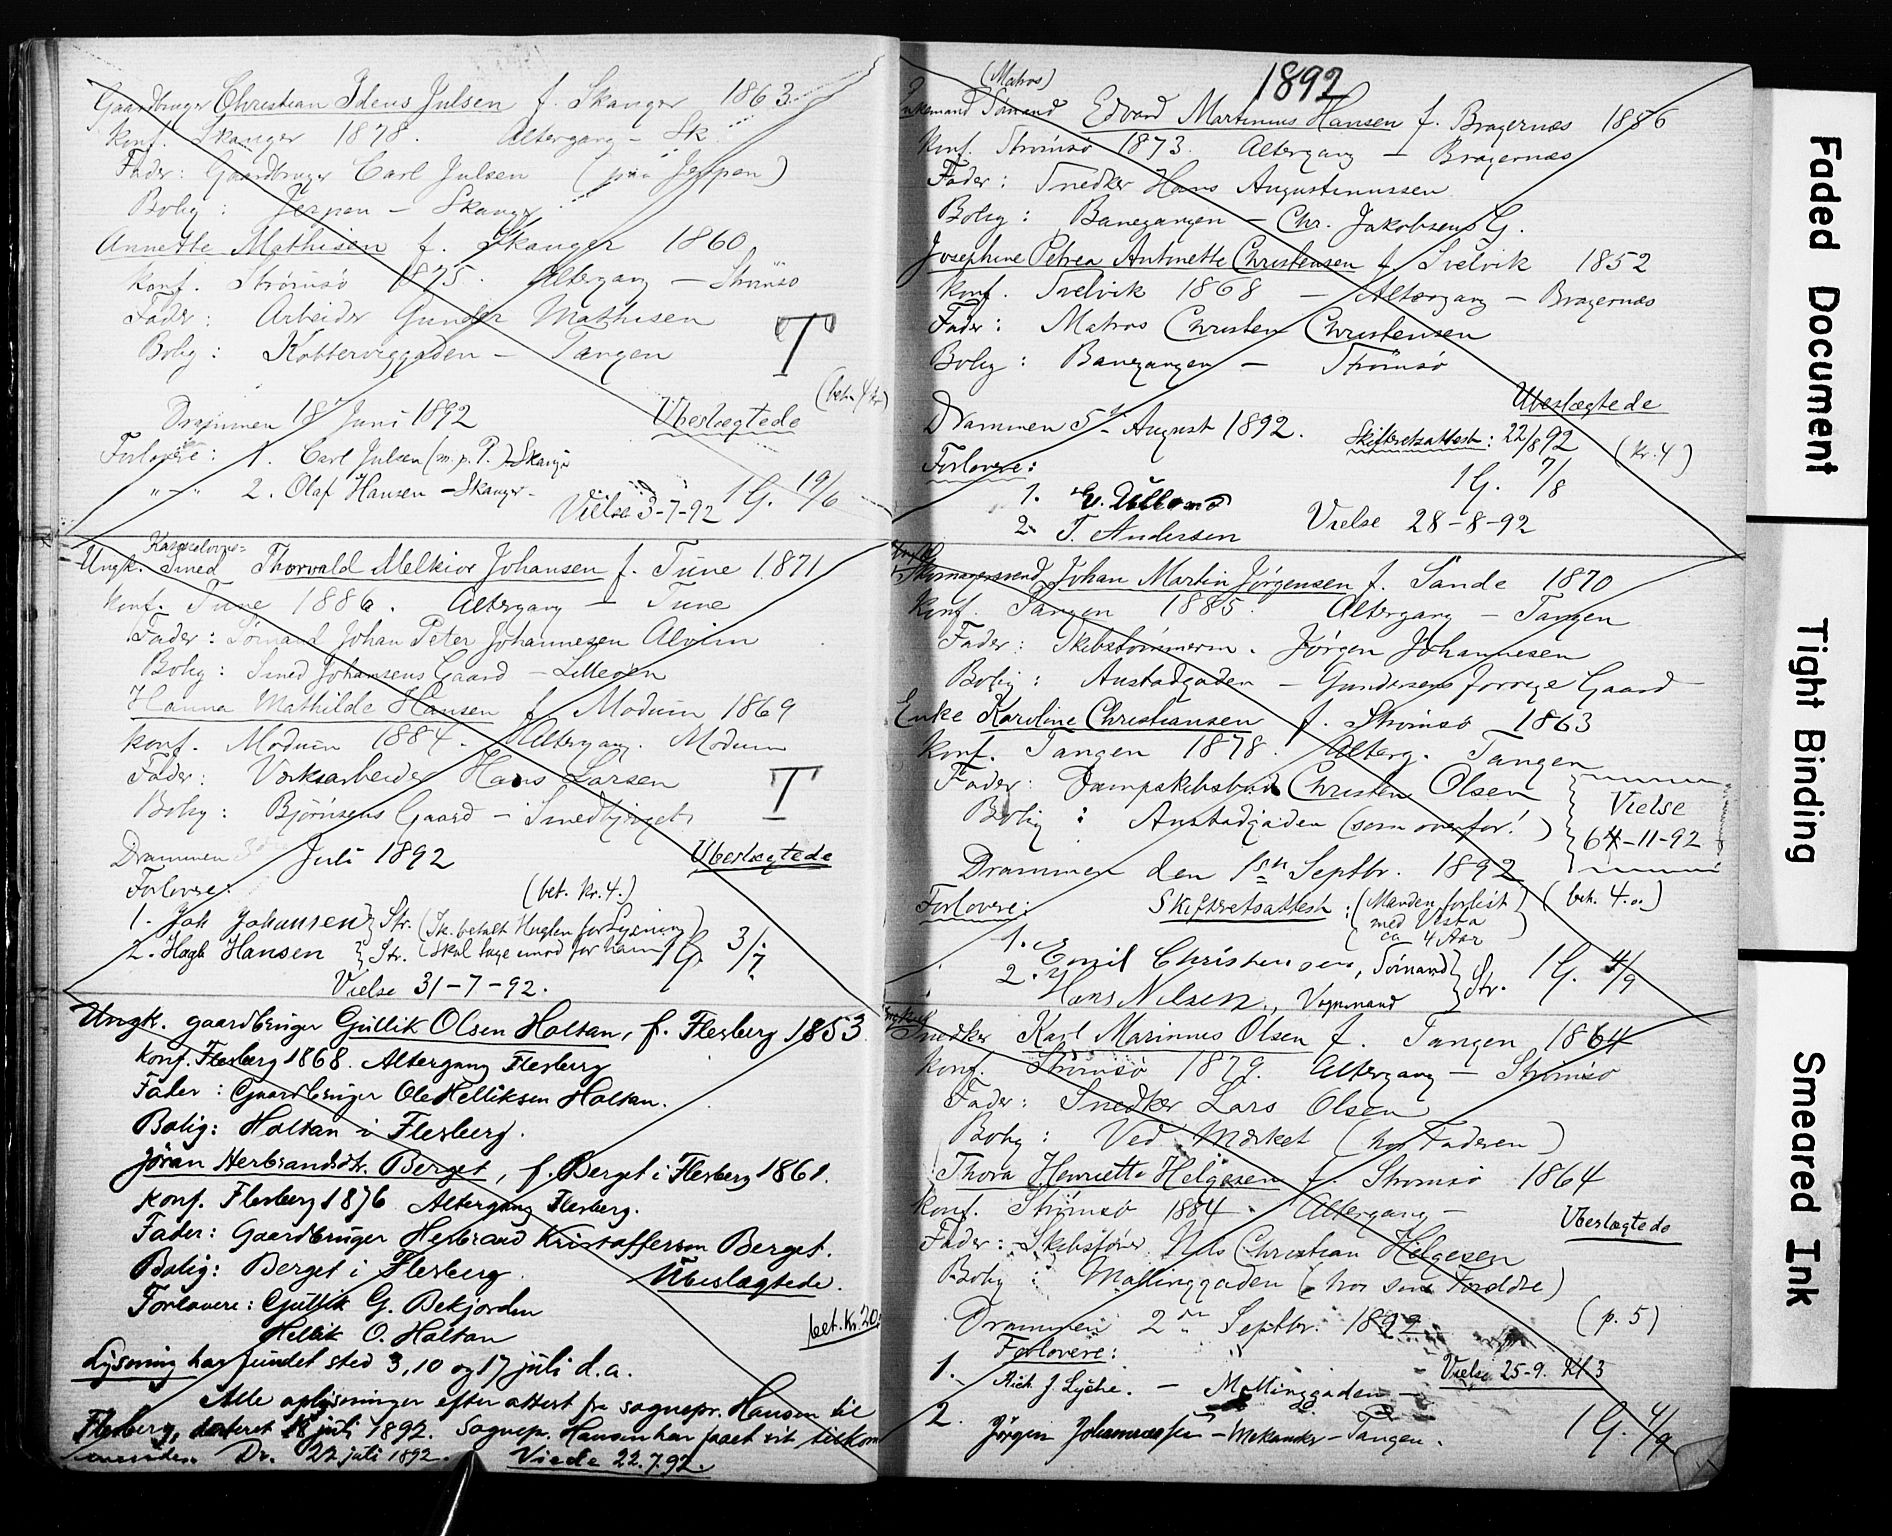 Gaardbruger Christian Idens Julsen f. Skanger 1863
Konf. Skanger 1878. Altergang - Sk.
Fader: Gaardbruger Carl Julsen (paa Jerpen)
Bolig: Jerpen - Skanger
Annette Mathisen f. Skanger 1860
Konf. Strømsø 1875. Altergang - Strømsø
Fader: Arbeider Gunder Mathisen
Bolig: - Tangen
T
Drammen 18 Juni 1892 Ubeslægtede (bet. 4 kr)
Forlovere: 1. Carl Julsen (m.p.P.) Skanger
" - " 2. Olaf Hansen - Skanger - 1 G. 19/6
Vielse 3-7-92
Ungk. Smed Thorvald Melkior Johansen f. Tune 1871
Konf. Tune 1886. Altergang - Tune
Fader: Sømand Johan Peter Johannesen Alvim
Bolig: Smed Johansens Gaard -
Hanna Mathilde Hansen f. Modum 1869
Konf. Modum 1884. Altergang. Modum
Fader: Værksarbeider Hans Larsen
Bolig: Bjørnsens Gaard -
T
Drammen Juli 1892 Ubeslægtede
Forlovere: (bet. Kr. 4.)
1. Joh Johansen } Str. (Sk. betalt for Lysning)
2. Hansen } Str. (skal tage imod for ham) 1 G. 3/7
Vielse 31-7-92.
Ungk. gaardbruger Gullik Olsen Holtan, f. Flesberg 1853
Konf. Flesberg 1868. Altergang Flesberg
Fader: Gaardbruger Ole Helliksen Holtan.
Bolig: Holtan i Flesberg.
Jøran Herbrandsdtr. Berget, f. Berget i Flesberg 1861.
Konf. Flesberg 1876 Altergang Flesberg.
Fader: Gaardbruger Herbrand Kristoffersen Berget.
Bolig: Berget i Flesberg. Ubeslægtede.
Forlovere: Gullik G. Bekjorden
Hellik O. Holtan bet. Kr. 20.
Lysning har fundet sted 3, 10 og 17 juli d.a.
Alle oplysninger efter attest fra sognepr. Hansen til
Flesberg, dateret 18 juli 1892. Sognep. Hansen har faaet sit tilkom
mende. Dr. 22 juli 1892. Viede 22.7.92.
1892
(Matros)
Enkemand Sømand Edvard Martinius Hansen f. Bragernæs 1856
Konf. Strømsø 1873. Altergang - Bragernæs
Fader: Snedker Hans Augustinussen
Bolig: Banegangen - Chr. Jakobsens G.
Josephine Petrea Antonette Christensen f. Svelvik 1852
Konf. Svelvik 1868 - Altergang - Bragernæs
Fader: Matros Christen Christensen
Bolig: Banegangen - Strømsø
Ubeslægtede
Drammen 5. August 1892. Skifteretsattest: 22/8 92 (kr. 4)
Forlovere: 1 G. 7/8
1.
2. T. Andersen Vielse 28-8-92
Skomagersvend Johan Martin Jørgensen f. Sande 1870
Konf. Tangen 1885. Altergang - Tangen
Fader: Skibstømmerm. Jørgen Johannesen
Bolig: Austadgaden - Gundersens forrige Gaard
Enke Karoline Christiansen f. Strømsø 1863
Konf. Tangen 1878. Alterg. Tangen
Fader: Christen Olsen
Bolig: Austadgaden (som ovenfor!) Vielse
6-11-92
Drammen den 1sn Septbr. 1892
Forlovere: Skifteretsattest: (Manden forlist (bet. 4.)
med Vesta
ca 4 Aar)
1. Emil Christensen, Sømand } Str. 1 G. 4/9
2. Hans Nilsen, Vognmand
Snedker Karl Marinius Olsen f. Tangen 1864
Konf. Strømsø 1879. Altergang - Strømsø
Fader: Snedker Lars Olsen
Bolig: Ved Mærket (hos Faderen)
Thora Henriette Helgesen f. Strømsø 1864
Konf. Strømsø 1884. Altergang -
Ubeslægtede
Fader: Skibsfører Nils Christian Helgesen
Bolig: Mallinggaden (hos sine Foreldre)
Drammen 2 Septbr. 1892 (p. 5)
Forlovere:
1. Rich. J. Lyche. - Mallinggaden - Vielse 25-9. Kl 3
2. Jørgen Johannessen - Mekaniker - Tangen. 1 G. 4/9
Faded Document
Tight Binding
Smeared Ink